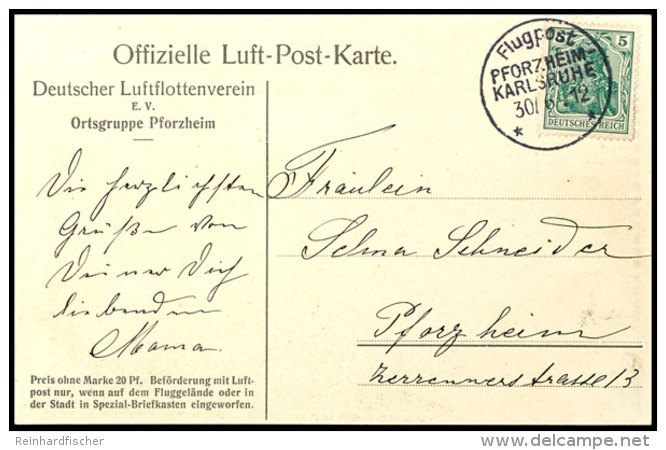 Offizielle Luft-Post-Karte.
Deutscher Luftflottenverein
E. V.
Ortsgruppe Pforzheim
Flugpost
PFORZHEIM-
KARLSRUHE
30/6.12
5
DEUTSCHES REICH
Die herzlichsten
Grüße von
Deiner Dich
liebenden
Mama.
Fräulein
Selma Schneider
Pforzheim
Zerrennerstrasse 13
Preis ohne Marke 20 Pf. Beförderung mit Luft-
post nur, wenn auf dem Fluggelände oder in
der Stadt in Spezial-Briefkasten eingeworfen.
Reinhardfischer
delcampe.net